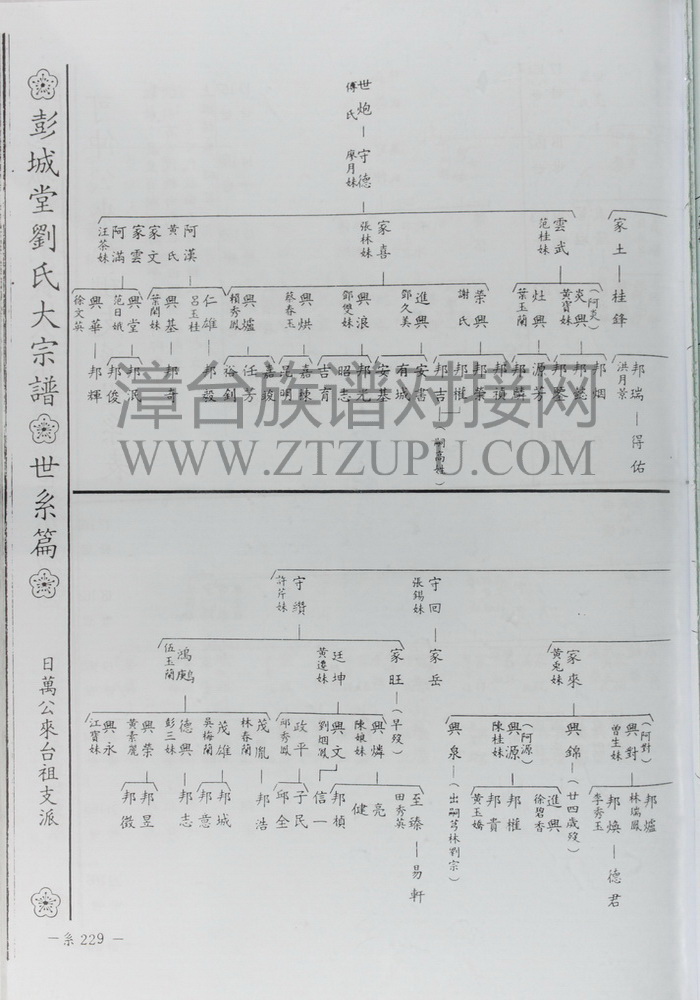 彭城堂劉氏大宗譜
世系篇
日萬公來台祖支派
世炮
傅氏
守德
廖月妹
家土
桂鋒
邦瑞
洪月景
得佑
雲武
范桂妹
(阿炎)
炎興
黃寶妹
邦烟
邦懿
邦鑒
灶興
葉玉蘭
源芳
家喜
張林妹
榮興
謝氏
邦禎
邦榮
邦權
邦吉
(嗣高姓)
進興
鄧久美
安書
有城
安基
興浪
鄧雙妹
邦元
昭志
吉育
興烘
蔡春玉
嘉棟
昆明
嘉政
興爐
賴秀鳳
任芳
裕釗
阿漢
黃氏
仁雄
呂玉桂
邦毅
家文
興基
葉閑妹
邦奇
家雲
阿滿
汪茶妹
興堂
范日娥
邦民
邦俊
興華
徐文英
邦輝
漳台族谱对接网
WWW.ZTZUPU.COM
家來
黃兎妹
(阿對)
興對
曾生妹
邦爐
林瑞鳳
邦煥
李秀玉
德君
興錦
(廿四歲歿)
(阿源)
興源
陳桂妹
進興
徐碧香
邦權
邦貴
黃玉嬌
興泉
(出嗣芎林劉宗)
守回
張錫妹
家岳
守纘
許芹妹
家旺
(早歿)
廷坤
黃遠妹
興燐
陳娘妹
至臻
田秀英
易軒
亮
健
興文
劉烟鳳
邦楨
信一
政平
邱秀鳳
子民
邱全
鴻鹧
伍玉蘭
茂胤
林春蘭
邦浩
茂雄
吳梅蘭
邦城
邦意
德興
彭三妹
邦志
興榮
黃素麗
邦昱
邦徵
興永
江寶妹
－系 229－